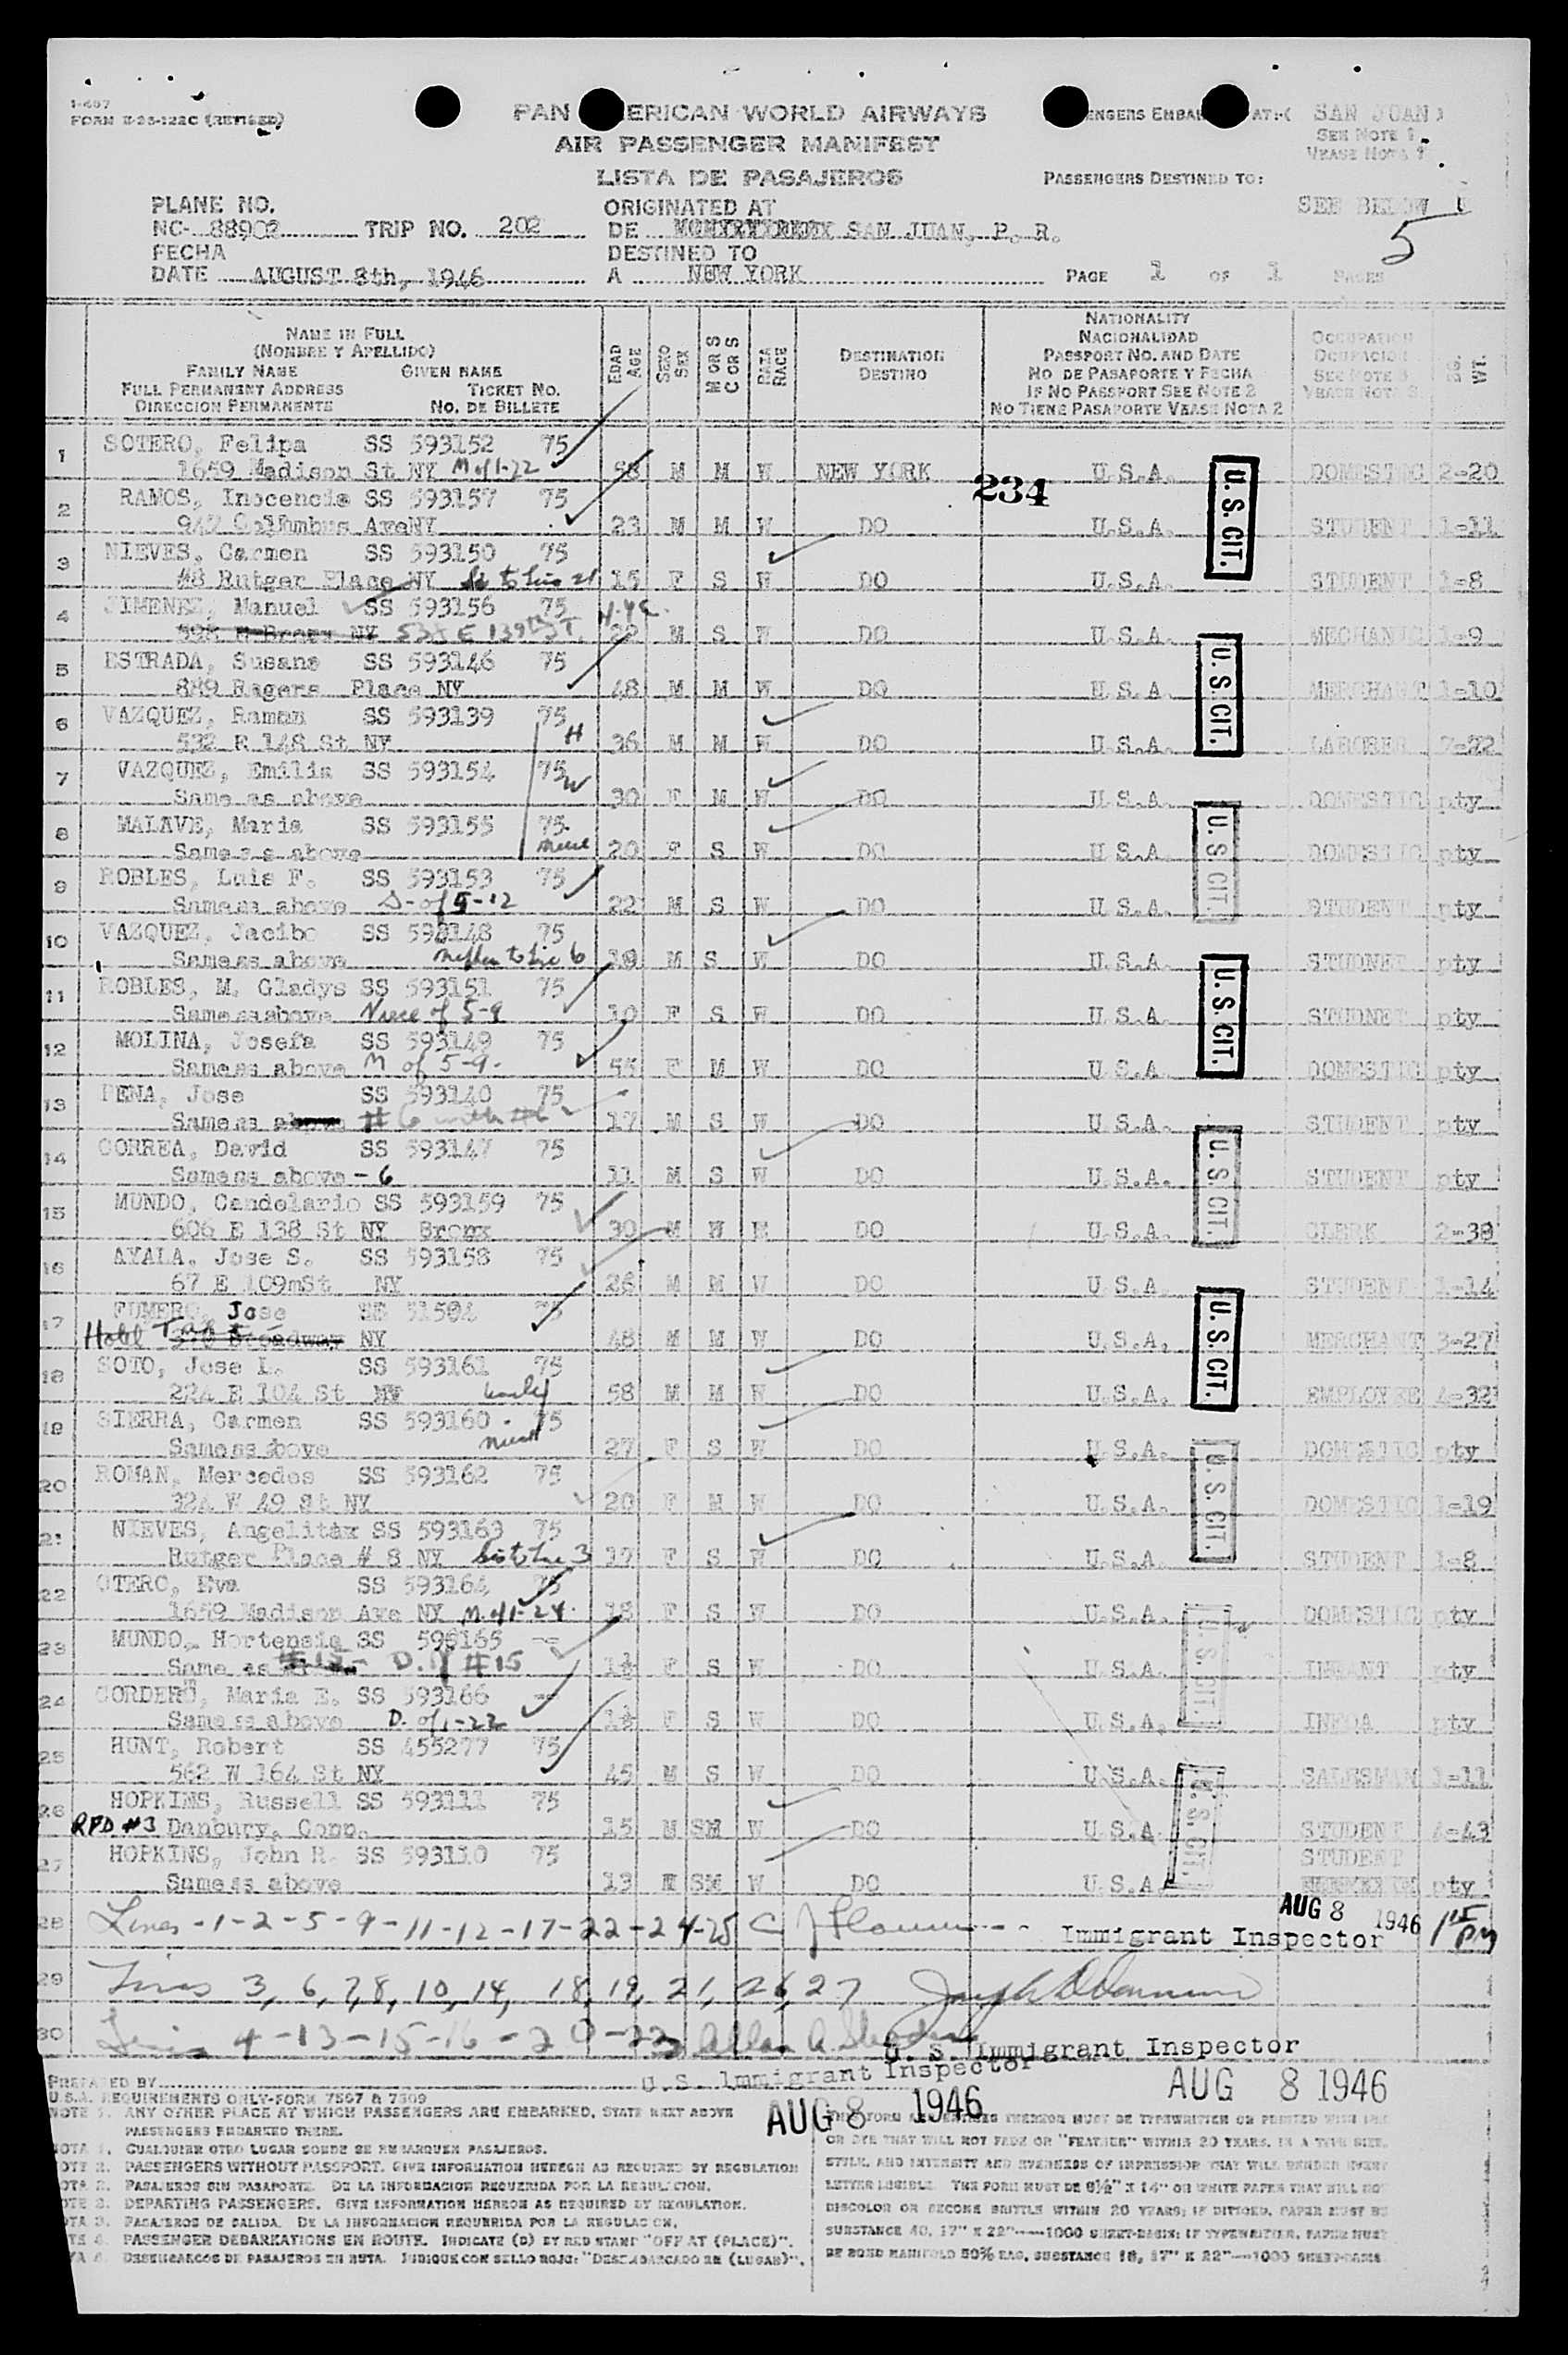 I-467
FORM E-23-122C (REVISED)
PAN AMERICAN WORLD AIRWAYS
AIR PASSENGER MANIFEST
LISTA DE PASAJEROS
PASSENGERS EMBARKED AT:( SAN JUAN )
SEE NOTE 1
VEASE NOTA 1
PASSENGERS DESTINED TO:
SEE BELOW
5
PLANE NO.
NC- 88902 TRIP NO. 202
FECHA
DATE AUGUST 8th, 1946
ORIGINATED AT
DE SAN JUAN, P. R.
DESTINED TO
A NEW YORK
PAGE 1 OF 1 PAGES
NAME IN FULL
(NOMBRE Y APELLIDO)
FAMILY NAME GIVEN NAME
FULL PERMANENT ADDRESS TICKET NO.
DIRECCION PERMANENTE NO. DE BILLETE
EDAD AGE
SEXO SEX
M OR S C OR S
RAZA RACE
DESTINATION
DESTINO
NATIONALITY
NACIONALIDAD
PASSPORT NO. AND DATE
NO DE PASAPORTE Y FECHA
IF NO PASSPORT SEE NOTE 2
NO TIENE PASAPORTE VEASE NOTA 2
OCCUPATION
OCUPACION
SEE NOTE 3
VEASE NOTA 3
WT.
1 SOTERO, Felipa SS 593152 75
1659 Madison St NY M of 1-22 58 M M W NEW YORK U.S.A. DOMESTIC 2-20
234
2 RAMOS, Inocencia SS 593157 75
947 Columbus AveNY 23 M M W DO U.S.A. STUDENT 1-11
3 NIEVES, Carmen SS 593150 75
#8 Rutger Place NY to line 21 15 F S W DO U.S.A. STUDENT 1-8
4 JIMENEZ, Manuel SS 593156 75
E 139th ST. N.Y.C. 22 M S W DO U.S.A. MECHANIC 1-9
5 ESTRADA, Susano SS 593146 75
889 Place NY 48 M M W DO U.S.A MERCHANT 1-10
6 VAZQUEZ, Ramon SS 593139 75 H
532 E 148 St NY 36 M M W DO U.S.A. LABORER 7-22
7 VAZQUEZ, Emilia SS 593154 75 W
Same as above 30 F M W DO U.S.A DOMESTIC pty
8 MALAVE, Maria SS 593155 75
Same s s above niece 20 F S W DO U.S.A. DOMESTIC pty
9 ROBLES, Luis F. SS 593153 75
Same ss above S-of 5-12 22 M S W DO U.S.A. STUDENT pty
10 VAZQUEZ, Jacibo SS 593148 75
Same ss above nephew to line 6 19 M S W DO U.S.A. STUDNET pty
11 ROBLES, M. Gladys SS 593151 75
Same ssabove Niece of 5-9 10 F S W DO U.S.A STUDNET pty
12 MOLINA, Josefa SS 593149 75
Same ss above M of 5-9. 55 F M W DO U.S.A DOMESTIC pty
13 PENA, Jose SS 593140 75
Same as above # 6 with #6 17 M S W DO U.S.A. STUDENT pty
14 CORREA, David SS 593147 75
Same ss above - 6 11 M S W DO U.S.A. STUDENT pty
15 MUNDO, Candelario SS 593159 75
606 E 138 St NY Bronx 30 M W DO U.S.A. CLERK 2-38
16 AYALA, Jose S. SS 593158 75
67 E 109mSt NY 26 M M W DO U.S.A. STUDENT 1-14
17 FUMERO, Jose SS 51504 75
Hotel Taft Broadway NY 48 M M W DO U.S.A. MERCHANT 3-27
18 SOTO, Jose L. SS 593161 75
224 E 104 St NY uncle 58 M M W DO U.S.A. EMPLOYEE 4-32
19 SIERRA, Carmen SS 593160 75
Same ss bove niece 27 F S W DO U.S.A. DOMESTIC pty
20 ROMAN, Mercedes SS 593162 75
324 W 49 St NY 20 F M W DO U.S.A. DOMESTIC 1-19
21 NIEVES, Angelitax SS 593163 75
Rutger Place # 8 NY Sis to line 3 17 F S W DO U.S.A. STUDENT 1-8
22 OTERO, Eva SS 593164 75
1659 Madison Ave NY M. of 1-24. 18 F S W DO U.S.A. DOMESTIC pty
23 MUNDO, Hortensia SS 593165 --
Same as #15 - D. of #15 1½ F S W DO U.S.A INFANT pty
24 CORDERO, Maria E. SS 593166 --
Same ss above D. of 1-22 1½ F S W DO U.S.A. pty
25 HUNT, Robert SS 455277 75
562 W 164 St NY 45 M S W DO U.S.A. SALESMAN 1-11
26 HOPKINS, Russell SS 593111 75
RFD #3 Danbury, Conn. 15 M SM W DO U.S.A STUDENT 4-43
27 HOPKINS, John R. SS 593110 75 STUDENT
Same ss above 13 M SM W DO U.S.A. pty
U.S. CIT.
U.S. CIT.
U.S. CIT.
U.S. CIT.
U.S. CIT.
U.S. CIT.
U.S. CIT.
U.S. CIT.
U.S. CIT.
AUG 8 1946
28 Lines -1-2-5-9-11-12-17-22-24-25 Immigrant Inspector
29 Lines 3, 6, 7, 8, 10, 14, 18, 19, 21, 26, 27
30 Lines 4-13-15-16-20-23
U. S. Immigrant Inspector
U.S. Immigrant Inspector
AUG 8 1946
AUG 8 1946
PREPARED BY
U.S.A. REQUIREMENTS ONLY-FORM 7507 & 7509
NOTE 1. ANY OTHER PLACE AT WHICH PASSENGERS ARE EMBARKED, STATE NEXT ABOVE
PASSENGERS EMBARKED THERE.
NOTA 1. CUALQUIER OTRO LUGAR DONDE SE EMBARQUEN PASAJEROS.
NOTE 2. PASSENGERS WITHOUT PASSPORT. GIVE INFORMATION HEREON AS REQUIRED BY REGULATION
NOTA 2. PASAJEROS SIN PASAPORTE. DE LA INFORMACION REQUERIDA POR LA REGULACION.
NOTE 3. DEPARTING PASSENGERS. GIVE INFORMATION HEREON AS REQUIRED BY REGULATION.
NOTA 3. PASAJEROS DE SALIDA. DE LA INFORMACION REQUERIDA POR LA REGULACION.
NOTE 4. PASSENGER DEBARKATIONS EN ROUTE. INDICATE (D) BY RED STAMP "OFF AT (PLACE)".
NOTA 4. DESEMBARCOS DE PASAJEROS EN RUTA. INDIQUE CON SELLO ROJO: "DESEMBARCADO EN (LUGAR)".
THIS FORM AND ENTRIES THEREON MUST BE TYPEWRITTEN OR PRINTED WITH INK
OR DYE THAT WILL NOT FADE OR "FEATHER" WITHIN 20 YEARS, IN A TYPE SIZE,
STYLE, AND INTENSITY AND EVENNESS OF IMPRESSION THAT WILL RENDER EVERY
LETTER LEGIBLE. THE FORM MUST BE 8½" X 14" ON WHITE PAPER THAT WILL NOT
DISCOLOR OR BECOME BRITTLE WITHIN 20 YEARS; IF DITTOED, PAPER MUST BE
SUBSTANCE 40, 17" X 22"——1000 SHEET-BASIS; IF TYPEWRITTEN, PAPER MUST
BE BOND MANIFOLD 50% RAG, SUBSTANCE 18, 17" X 22"——1000 SHEET-BASIS.